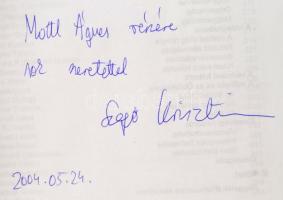 Mottl Ágnes részére
sok szeretettel
Szegő Krisztina
2004.05.24.